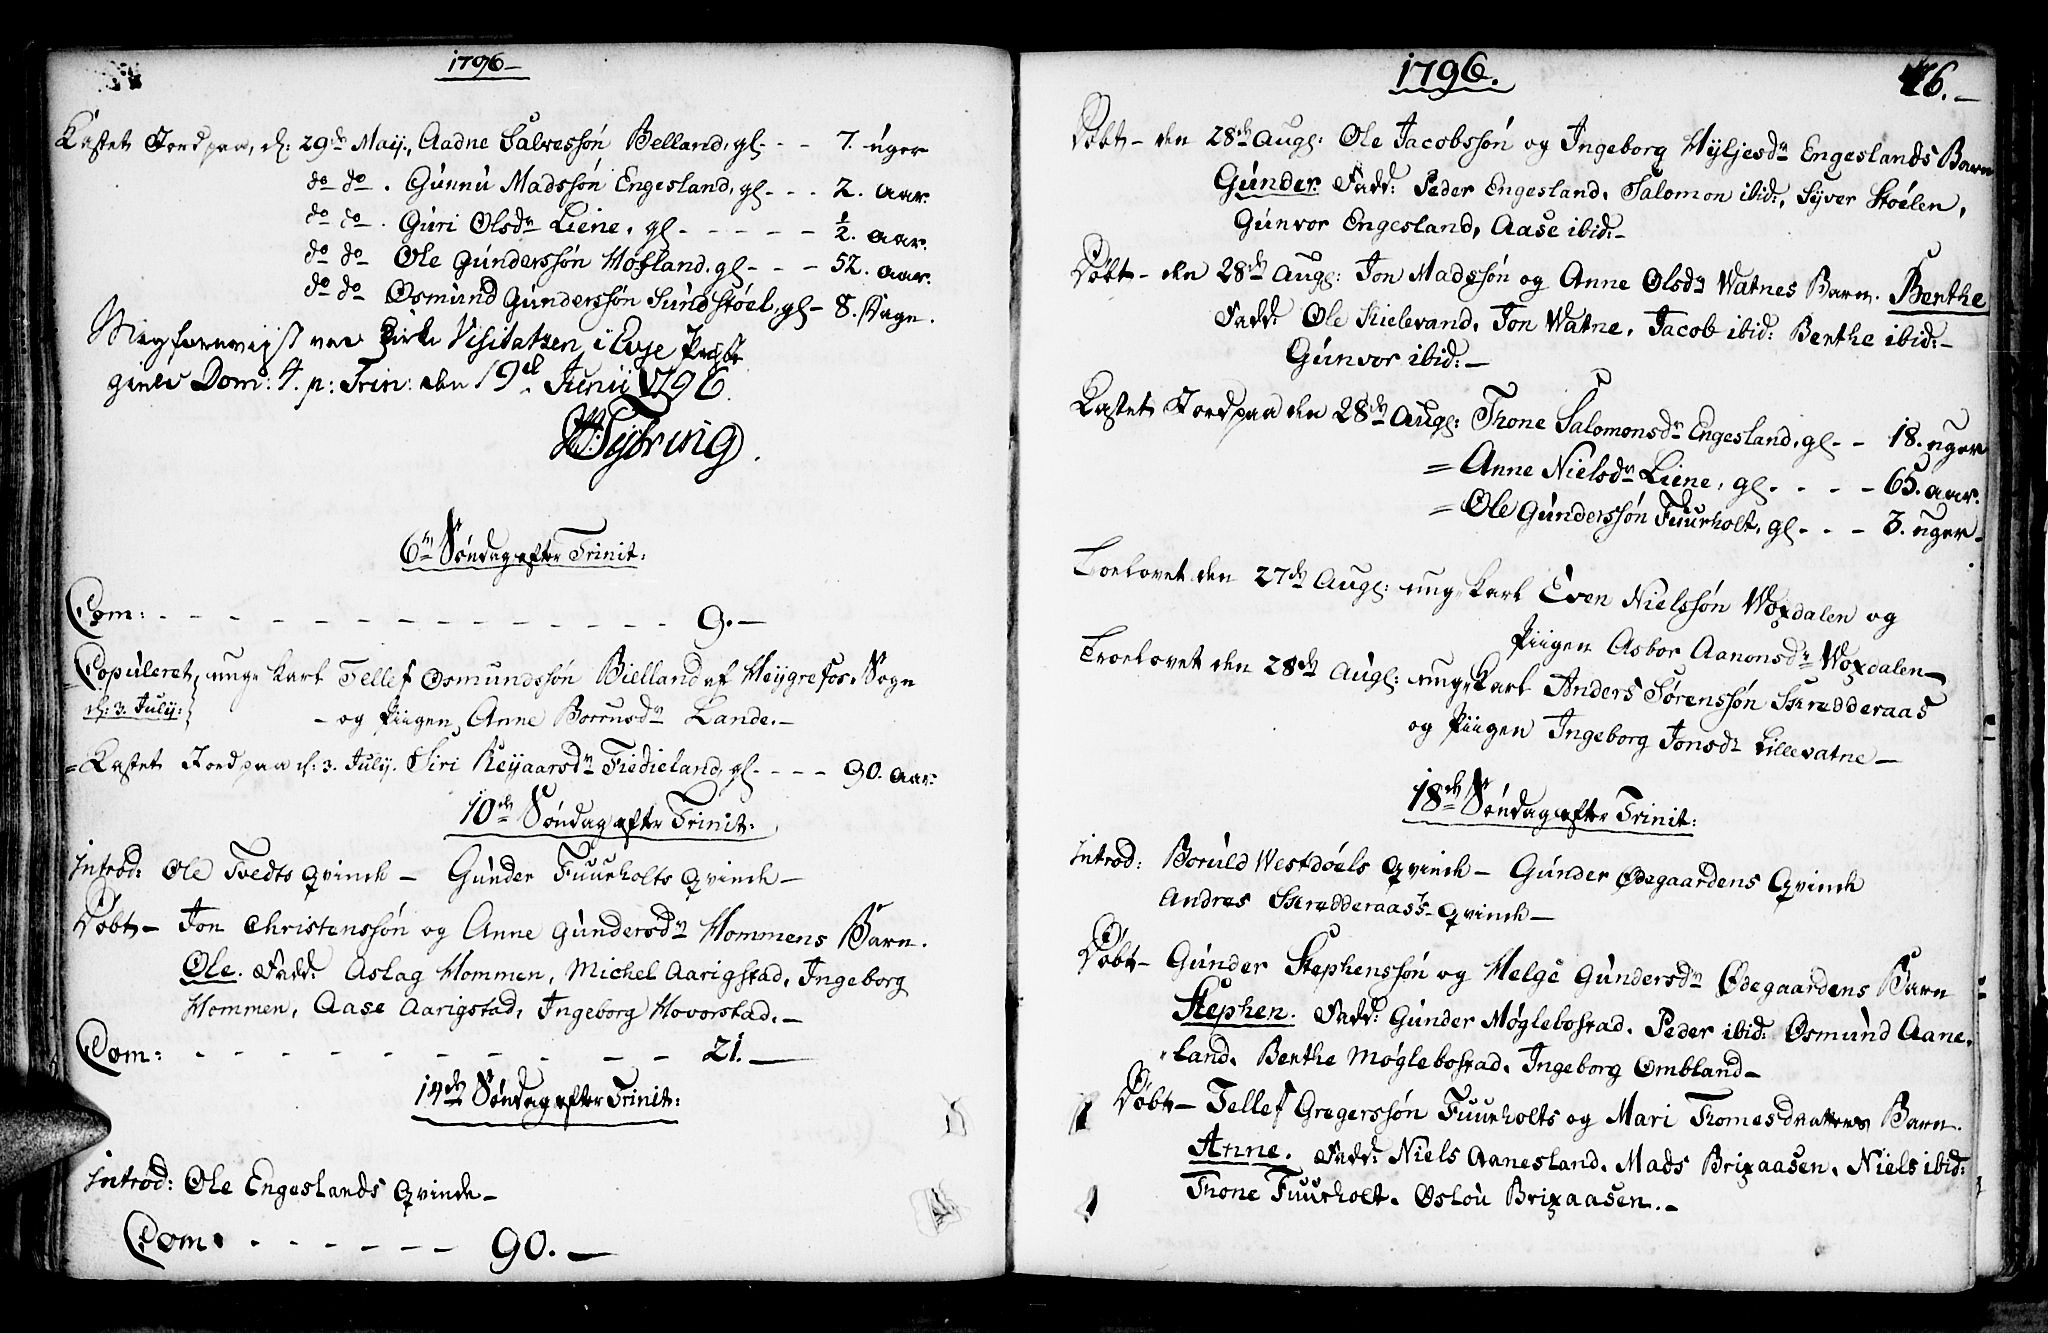 1796-
Kastet Jord paa, d: 29de Maij, Aadne Salvessøn Belland, gl. - - 7. uger
do do . Gunnu Madssøn Engesland, gl - - - 2. aar.
do do . Guri Olsdr Liene, gl - - - - - ½. aar.
do do Ole Gunderssøn Høfland, gl - - - 52. aar.
do do Osmund Gunderssøn Sundstøel, gl - 8. Dage.
Mig foreviist ved Kirke Visitatzen i Evje Præste
gield Dom: 4. p: Trin: den 19de Junii 1796.
6te Søndag efter Trinit:
Com: - - - - - - - - - - - - - - - - 9. -
Copuleret, unge Karl Tellef Osmundssøn Bielland af Heygrefos Sogn
d: 3. July: - og Piigen, Anne Borrusdr Lande. -
= Kastet Jord paa d: 3. July. Siri Reyaarsdr Fiedieland, gl - - - - 90. aar
10de Søndag efter Trinit:
Introd: Ole Tvedts Qvinde - Gunder Fuurholts Qvinde -
Døbt - Jon Christenssøn og Anne Gundersdr Hommens Barn.
Ole. Fadd: Aslag Hommen, Michel Aarigstad, Ingeborg
Hommen, Aase Aarigstad, Ingeborg Hovorstad. -
Com: - - - - - - - - - - - 21. -
14de Søndag efter Trinit:
Introd: Ole Engeslands Qvinde -
Com: - - - - - - 90. -
1796.
76. -
Døbt - den 28de Aug: Ole Jacobssøn og Ingeborg Hyljesdr Engeslands Barn
Gunder Fadd: Peder Engesland, Salomon ibid:, Syver Støelen,
Gunvor Engesland, Aase ibid: -
Døbt - den 28de Aug: Jon Madssøn og Anne Olsdr Watnes Barn. Berthe
Fadd: Ole Kielevand, Jon Watne, Jacob ibid: Berthe ibid: -
Gunvor ibid: -
Kastet Jord paa den 28de Aug: Thone Salomonsdr Engesland, gl - - 18. uger
= Anne Nielsdr Liene, gl - - - - 65. aar.
= Ole Gunderssøn Fuurholt, gl - - - 3. uger -
Troelovet den 27de Aug: unge Karl Even Nielssøn Woxdalen og
Piigen Asbor Aanonsdr Woxdalen -
Troelovet den 28de Aug: unge Karl Anders Sørenssøn Skredderaas
og Piigen Ingeborg Jonsdr Lillevatne -
18de Søndag efter Trinit:
Introd: Boruld Westdøels Qvinde - Gunder Ødegaardens Qvinde
Andres Skredderaas's Qvinde -
Døbt - Gunder Stephenssøn og Helge Gundersdr Ødegaardens Barn
Stephen. Fadd: Gunder Møglebostad, Peder ibid: Osmund Aane-
land, Berthe Møglebostad, Ingeborg Ombland -
Døbt - Tellef Gregerssøn Fuurholts og Mari Thomesdatters Barn.
Anne. Fadd: Niels Aanesland, Mads Brixaasen, Niels ibid:
Thone Fuurholt, Oslou Brixaasen. -